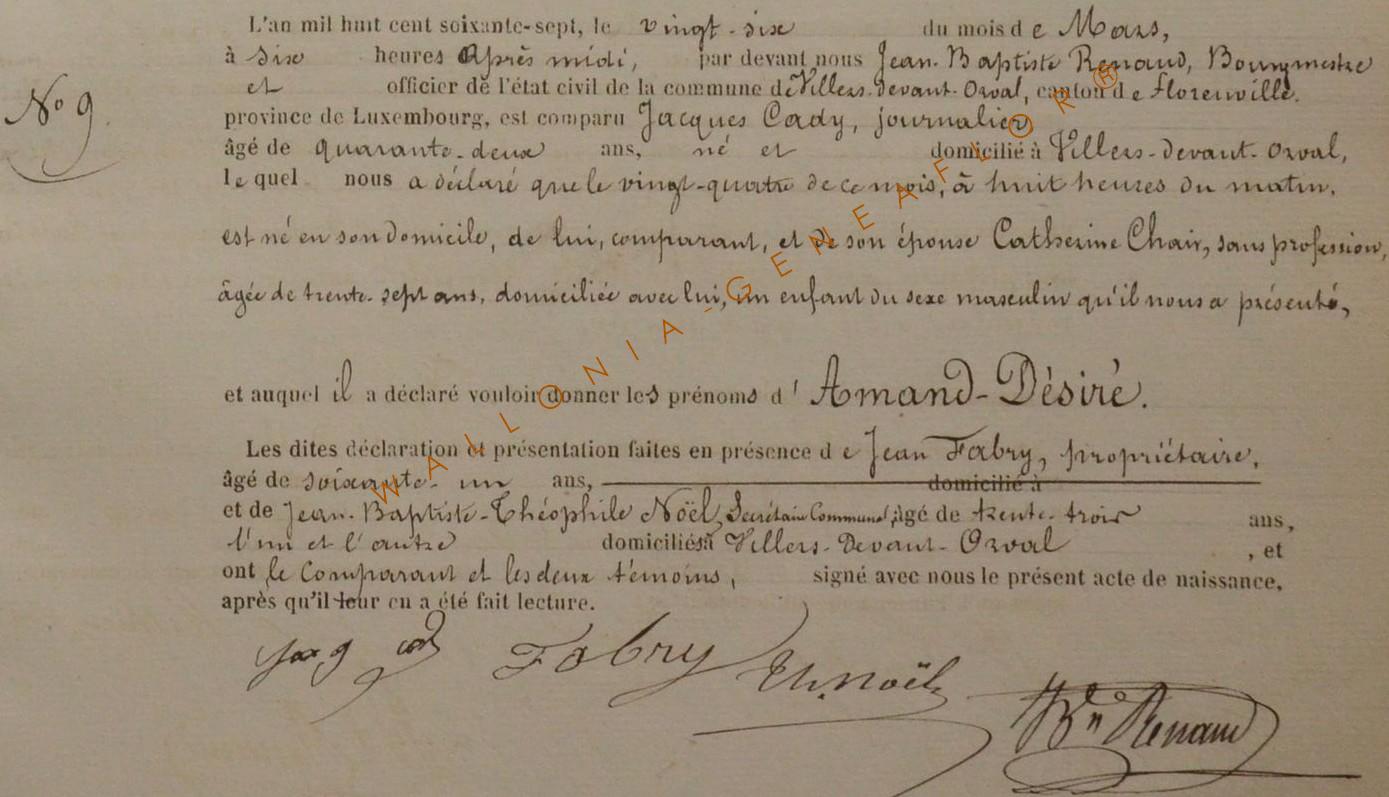 L'an mil huit cent soixante-sept, le vingt-six du mois de Mars,
à six heures Après midi, par devant nous Jean-Baptiste Renaud, Bourgmestre
et officier de l'état civil de la commune de Villers-devant-Orval, canton de florenville.
N° 9.
province de Luxembourg, est comparu Jacques Cady, journalier
âgé de quarante-deux ans, né et domicilié à Villers-devant-Orval,
lequel nous a déclaré que le vingt-quatre de ce mois, à huit heures du matin,
est né en son domicile, de lui, comparant, et de son épouse Catherine Chair, sans profession,
âgée de trente-sept ans, domiciliée avec lui, un enfant du sexe masculin qu'il nous a présenté,
et auquel il a déclaré vouloir donner les prénoms d'Amand-Désiré.
Les dites déclaration et présentation faites en présence de Jean Fabry, propriétaire,
âgé de soixante-un ans, domicilié à
et de Jean-Baptiste-Théophile Noël, Secrétaire Communal, âgé de trente-trois ans,
l'un et l'autre domiciliés à Villers-Devant-Orval, et
ont le Comparant et les deux témoins, signé avec nous le présent acte de naissance,
après qu'il leur en a été fait lecture.
Fabry Th. Noël
Bte Renaud
WALLONIA-GENEAFLOR®